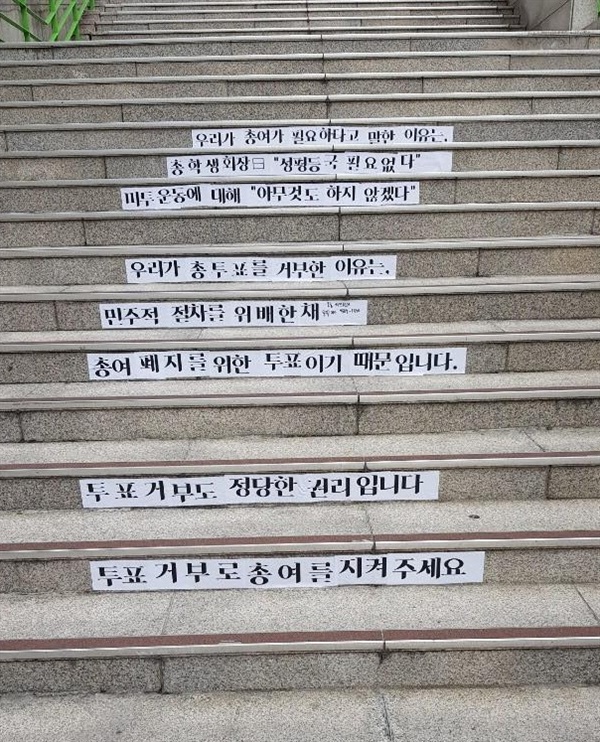 우리가 총여가 필요하다고 말한 이유는,
총학생회상曰 "성평등국 필요없다"
미투운동에 대해 "아무것도 하지 않겠다"
우리가 총투표를 거부한 이유는,
민주적 절차를 위배한채
총여 폐지를 위한 투표이기 때문입니다.
투표거부도 정당한 권리입니다
투표거부로 총여를 지켜주세요